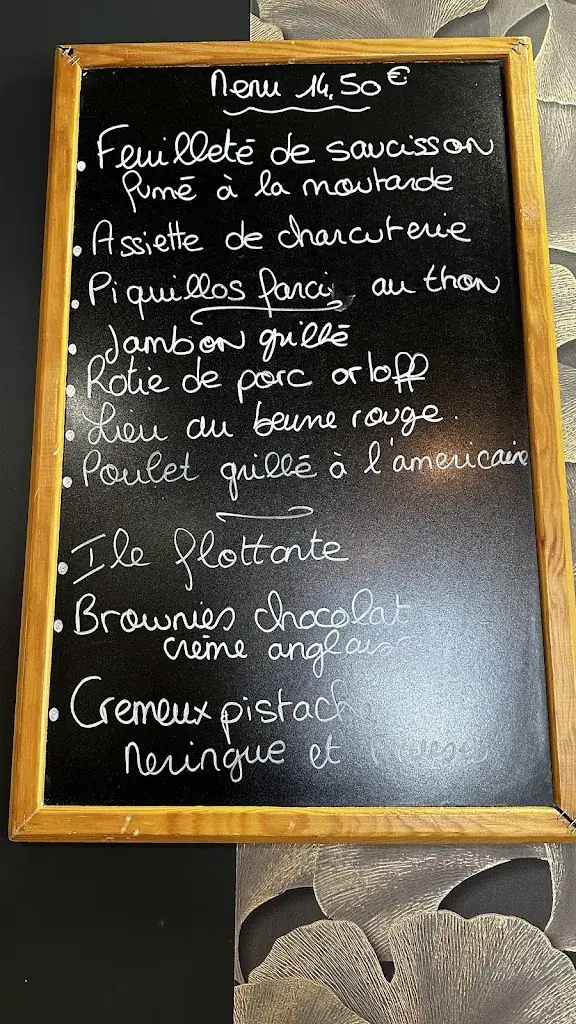 Menu 14.50€
Feuilleté de saucisson
fumé à la moutarde
Assiette de charcuterie
Piquillos farci au thon
Jambon grillé
Rotie de porc orloff
Lieu au beurre rouge.
Poulet grillé à l'americaine
Ile flottante
Brownies chocolat
crème anglais
Cremeux pistach
Meringue et